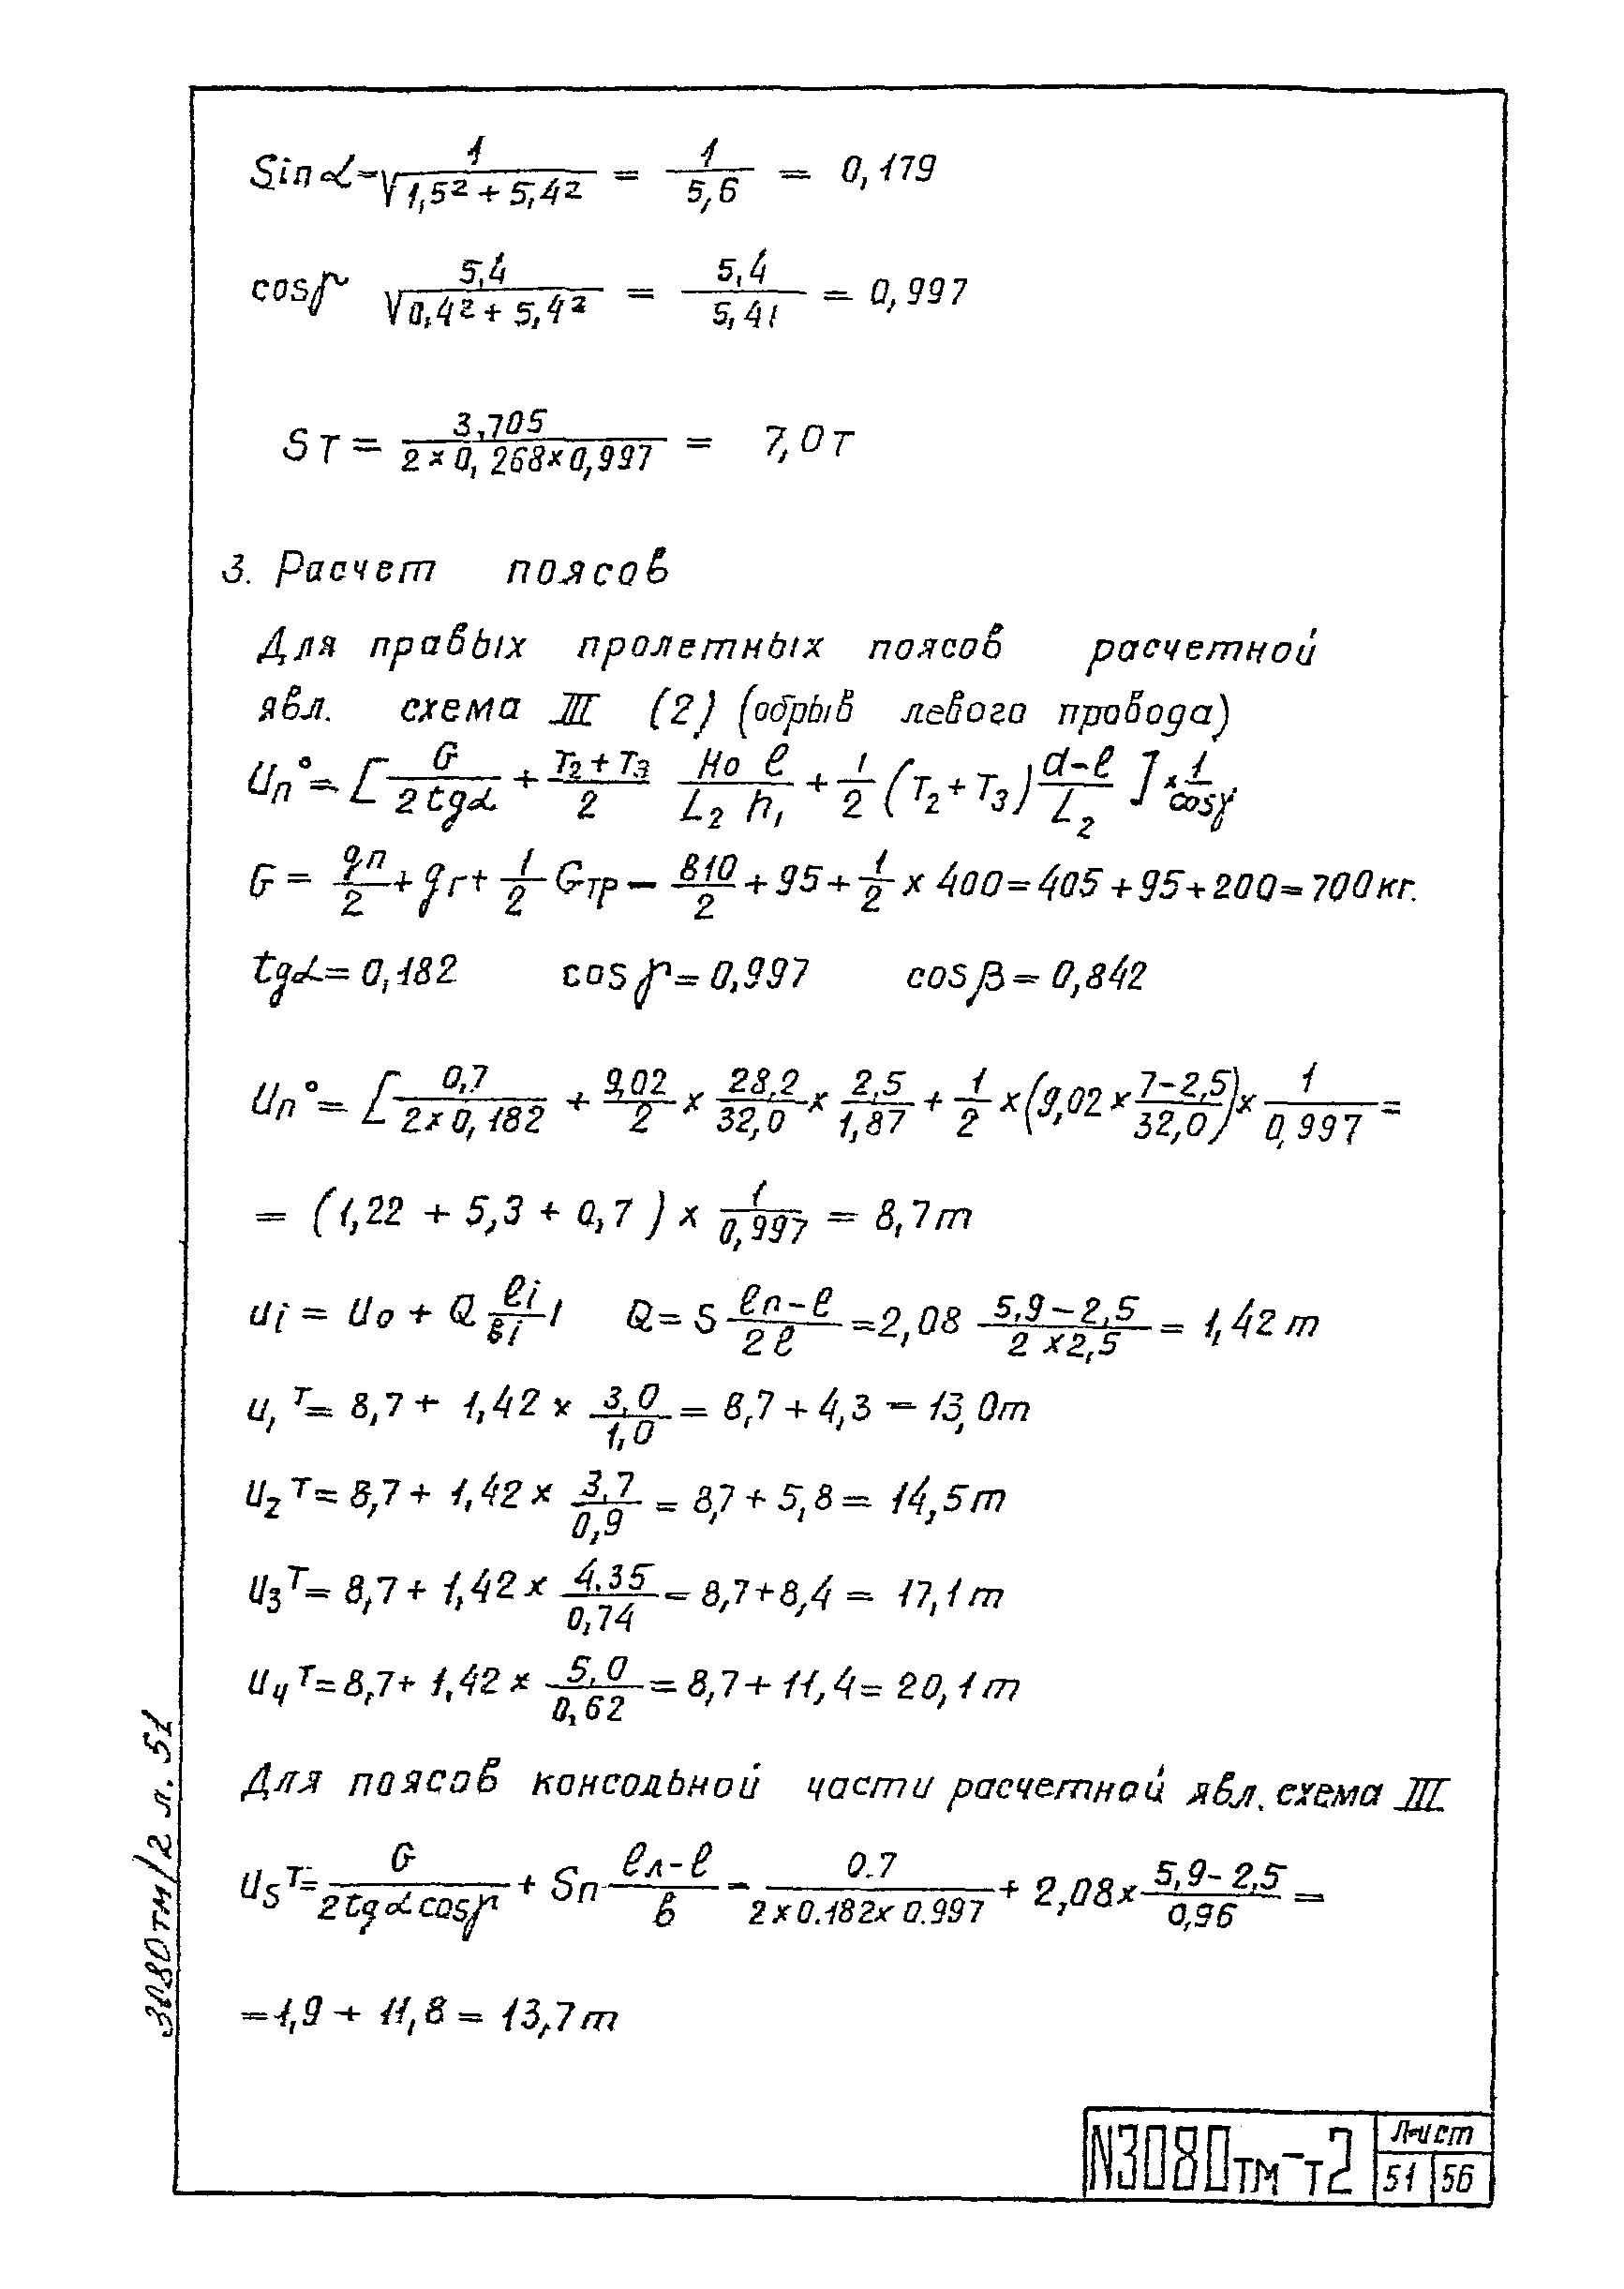 Sin α = 1/√(1,5² + 5,4²) = 1/5,6 = 0,179
cos γ 5,4/√(0,4² + 5,4²) = 5,4/5,41 = 0,997
Sт = 3,705/(2 × 0,268 × 0,997) = 7,0т
3. Расчет поясов
Для правых пролетных поясов расчетной
явл. схема III (2) (обрыв левого провода)
Uп° = [G/(2 tgα) + (T₂ + T₃)/2 Hо ℓ/(L₂ h₁) + 1/2 (T₂ + T₃) (d − ℓ)/L₂] × 1/cosγ
G = qп/2 + qг + 1/2 Gтр − 810/2 + 95 + 1/2 × 400 = 405 + 95 + 200 = 700 кг.
tgα = 0,182 cos γ = 0,997 cos β = 0,842
Uп° = [0,7/(2 × 0,182) + 9,02/2 × 28,2/32,0 × 2,5/1,87 + 1/2 × (9,02 × (7 − 2,5)/32,0) × 1/0,997 =
= (1,22 + 5,3 + 0,7) × 1/0,997 = 8,7т
Ui = Uо + Q ℓi/вi 1 Q = S (ℓп − ℓ)/(2ℓ) = 2,08 (5,9 − 2,5)/(2 × 2,5) = 1,42 т
U₁ᵀ = 8,7 + 1,42 × 3,0/1,0 = 8,7 + 4,3 − 13,0т
U₂ᵀ = 8,7 + 1,42 × 3,7/0,9 = 8,7 + 5,8 = 14,5т
U₃ᵀ = 8,7 + 1,42 × 4,35/0,74 = 8,7 + 8,4 = 17,1т
U₄ᵀ = 8,7 + 1,42 × 5,0/0,62 = 8,7 + 11,4 = 20,1т
Для поясов консольной части расчетной явл. схема III
U₅ᵀ = G/(2tgα cosγ) + Sп (ℓл − ℓ)/в − 0.7/(2 × 0.182 × 0.997) + 2,08 × (5,9 − 2,5)/0,96 =
= 1,9 + 11,8 = 13,7т
3080тм/2 л. 51
N3080тм-т2
Лист
51 56